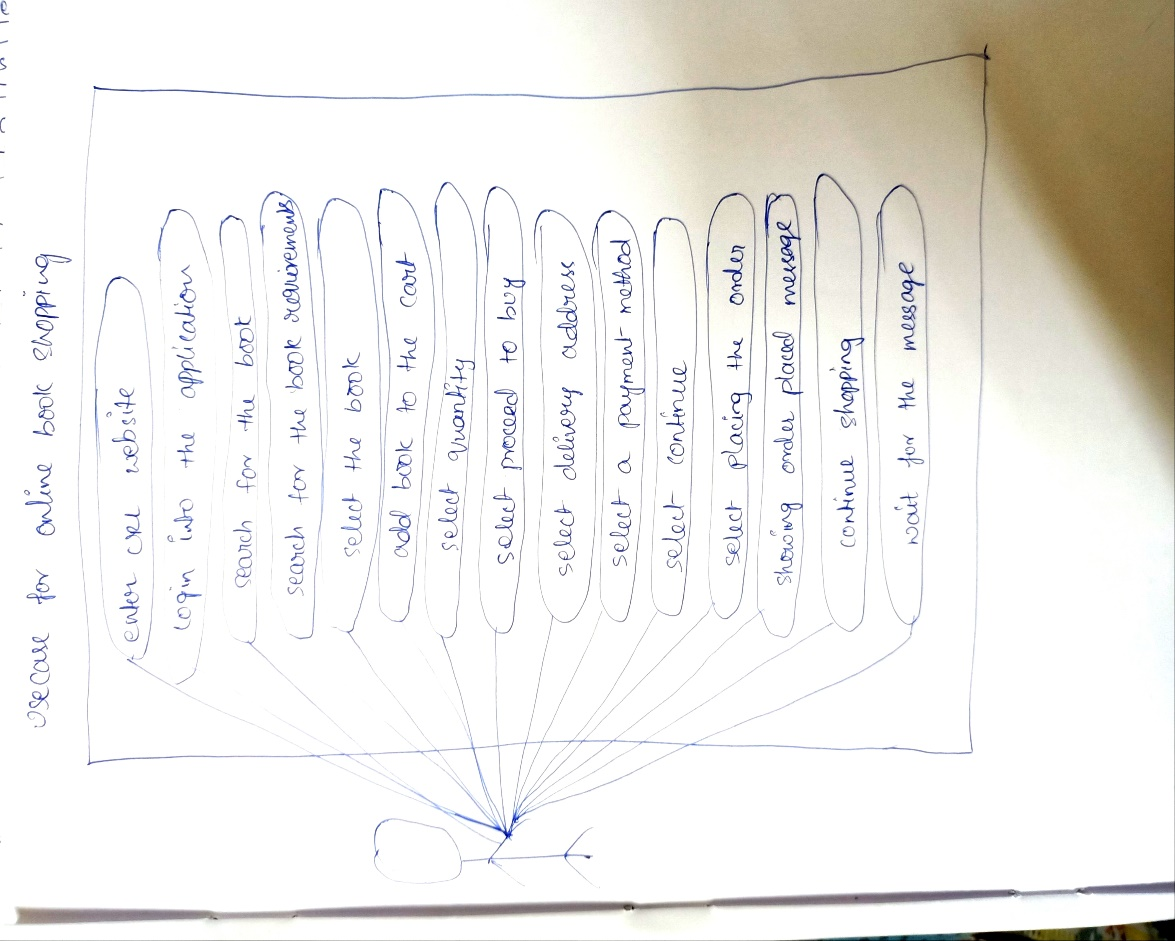 usecase for online book shopping
enter URL website
Login into the application
search for the book
search for the book requirements
select the book
add book to the cart
select quantity
select proceed to buy
select delivery address
select a payment method
select continue
select placing the order
showing order placed message
continue shopping
wait for the message